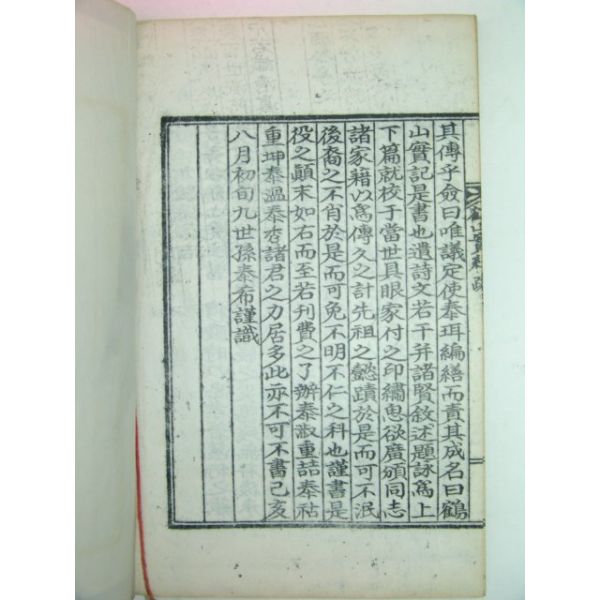 其傳乎僉曰唯議定使泰珥編繕而責其成名曰鶴
山實記是書也遺詩文若干并諸賢敘述題詠爲上
下篇就校于當世具眼家付之印繡思欲廣頒同志
諸家藉以爲傳久之計先祖之懿蹟於是而可不泯
後裔之不肖於是而可免不明不仁之科也謹書是
役之顚末如右而至若刊費之了辦泰淑重喆泰祜
重坤泰溫泰秀諸君之力居多此亦不可不書己亥
八月初旬九世孫泰希謹識